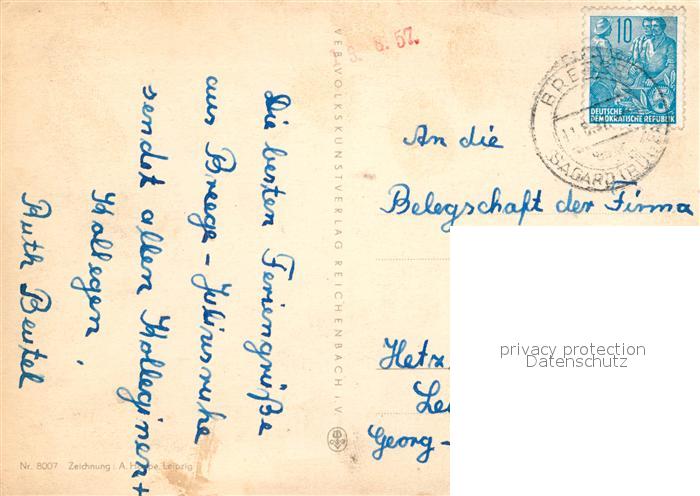 Die besten Feriengrüße
aus Breege - Juliusruhe
sendet allen Kolleginen +
Kollegen!
Ruth Beutel
VEB VOLKSKUNSTVERLAG REICHENBACH i. V.
Nr. 8007 Zeichnung: A. Leipzig
6. 57.
10
DEUTSCHE
DEMOKRATISCHE REPUBLIK
SAGARD
An die
Belegschaft der Firma
Hetz
Le
Georg -
privacy protection
Datenschutz